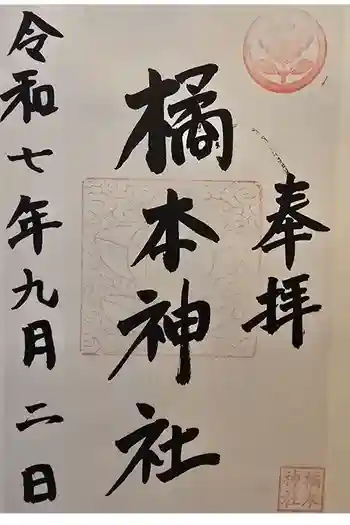 奉拝
橘本神社
令和七年九月二日
橘本
神社